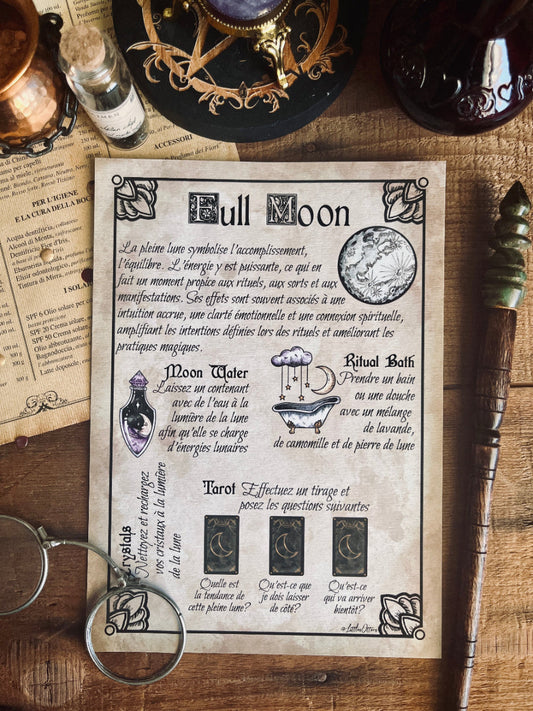 100 ml.
ACCESSORI
PER L'IGIENE
E LA CURA DELLA BOC
Acqua dentifricia,
Alcool di Menta,
Dentifricio
Elixir odontalgico,
Tintura di
I SOLAR
SPF 6 Olio solare per
SPF 20 Crema solare
SPF 50 Crema solare
Olio abbronzante,
Bagnodoccia,
Latte doposole,
Full Moon
La pleine lune symbolise l'accomplissement,
l'équilibre. L'énergie y est puissante, ce qui en
fait un moment propice aux rituels, aux sorts et aux
manifestations. Ses effets sont souvent associés à une
intuition accrue, une clarté émotionnelle et une connexion spirituelle,
amplifiant les intentions définies lors des rituels et améliorant les
pratiques magiques.
Moon Water
Laissez un contenant
avec de l'eau à la
lumière de la lune
afin qu'elle se charge
d'énergies lunaires
Ritual Bath
Prendre un bain
ou une douche
avec un mélange
de lavande,
de camomille et de pierre de lune
Crystals
Nettoyez et rechargez
vos cristaux à la lumière
de la lune
Tarot Effectuez un tirage et
posez les questions suivantes
Quelle est
la tendance de
cette pleine lune?
Qu'est-ce que
je dois laisser
de côté?
Qu'est-ce
qui va arriver
bientôt?